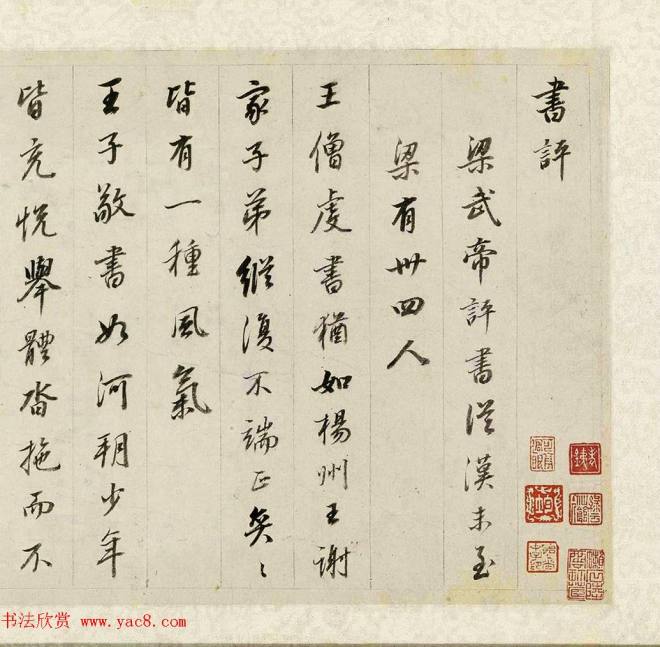 書評
梁武帝評書從漢末至
梁有卌四人
王僧虔書猶如楊州王謝
家子弟縱復不端正奕〻
皆有一種風氣
王子敬書如河朔少年
皆充悅舉體沓拖而不
书法欣赏 www.yac8.com